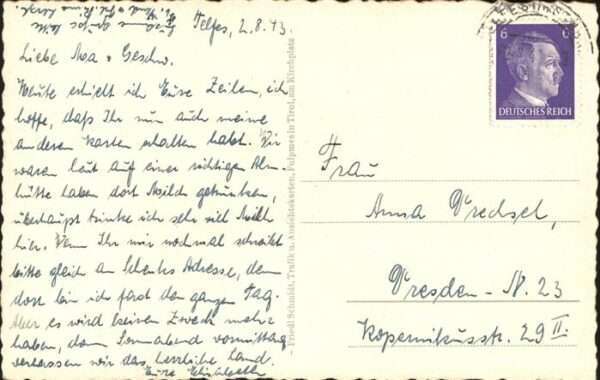 Telfes, 2.8.43.
Liebe Moa u. Geschw.
Heute erhielt ich Eure Zeilen, ich
hoffe, daß Ihr nun auch meine
anderen Karten erhalten habt. Wir
waren heut auf einer richtigen Alm-
hütte haben dort Milch getrunken,
überhaupt trinke ich sehr viel Milch
hier. Wenn Ihr mir nochmal schreibt
bitte gleich an Adresse, denn
dort bin ich fast den ganzen Tag.
Aber es wird keinen Zweck mehr
haben, denn Sonnabend vormittag
verlassen wir das herrliche Land.
Eure Elisabeth
- Friedl Schmidt, Trafik u. Ansichtskarten, Fulpmes in Tirol, am Kirchplatz -
6 6
DEUTSCHES REICH
Frau
Anna Drechsel,
Dresden-N. 23
Kopernikusstr. 29 II.